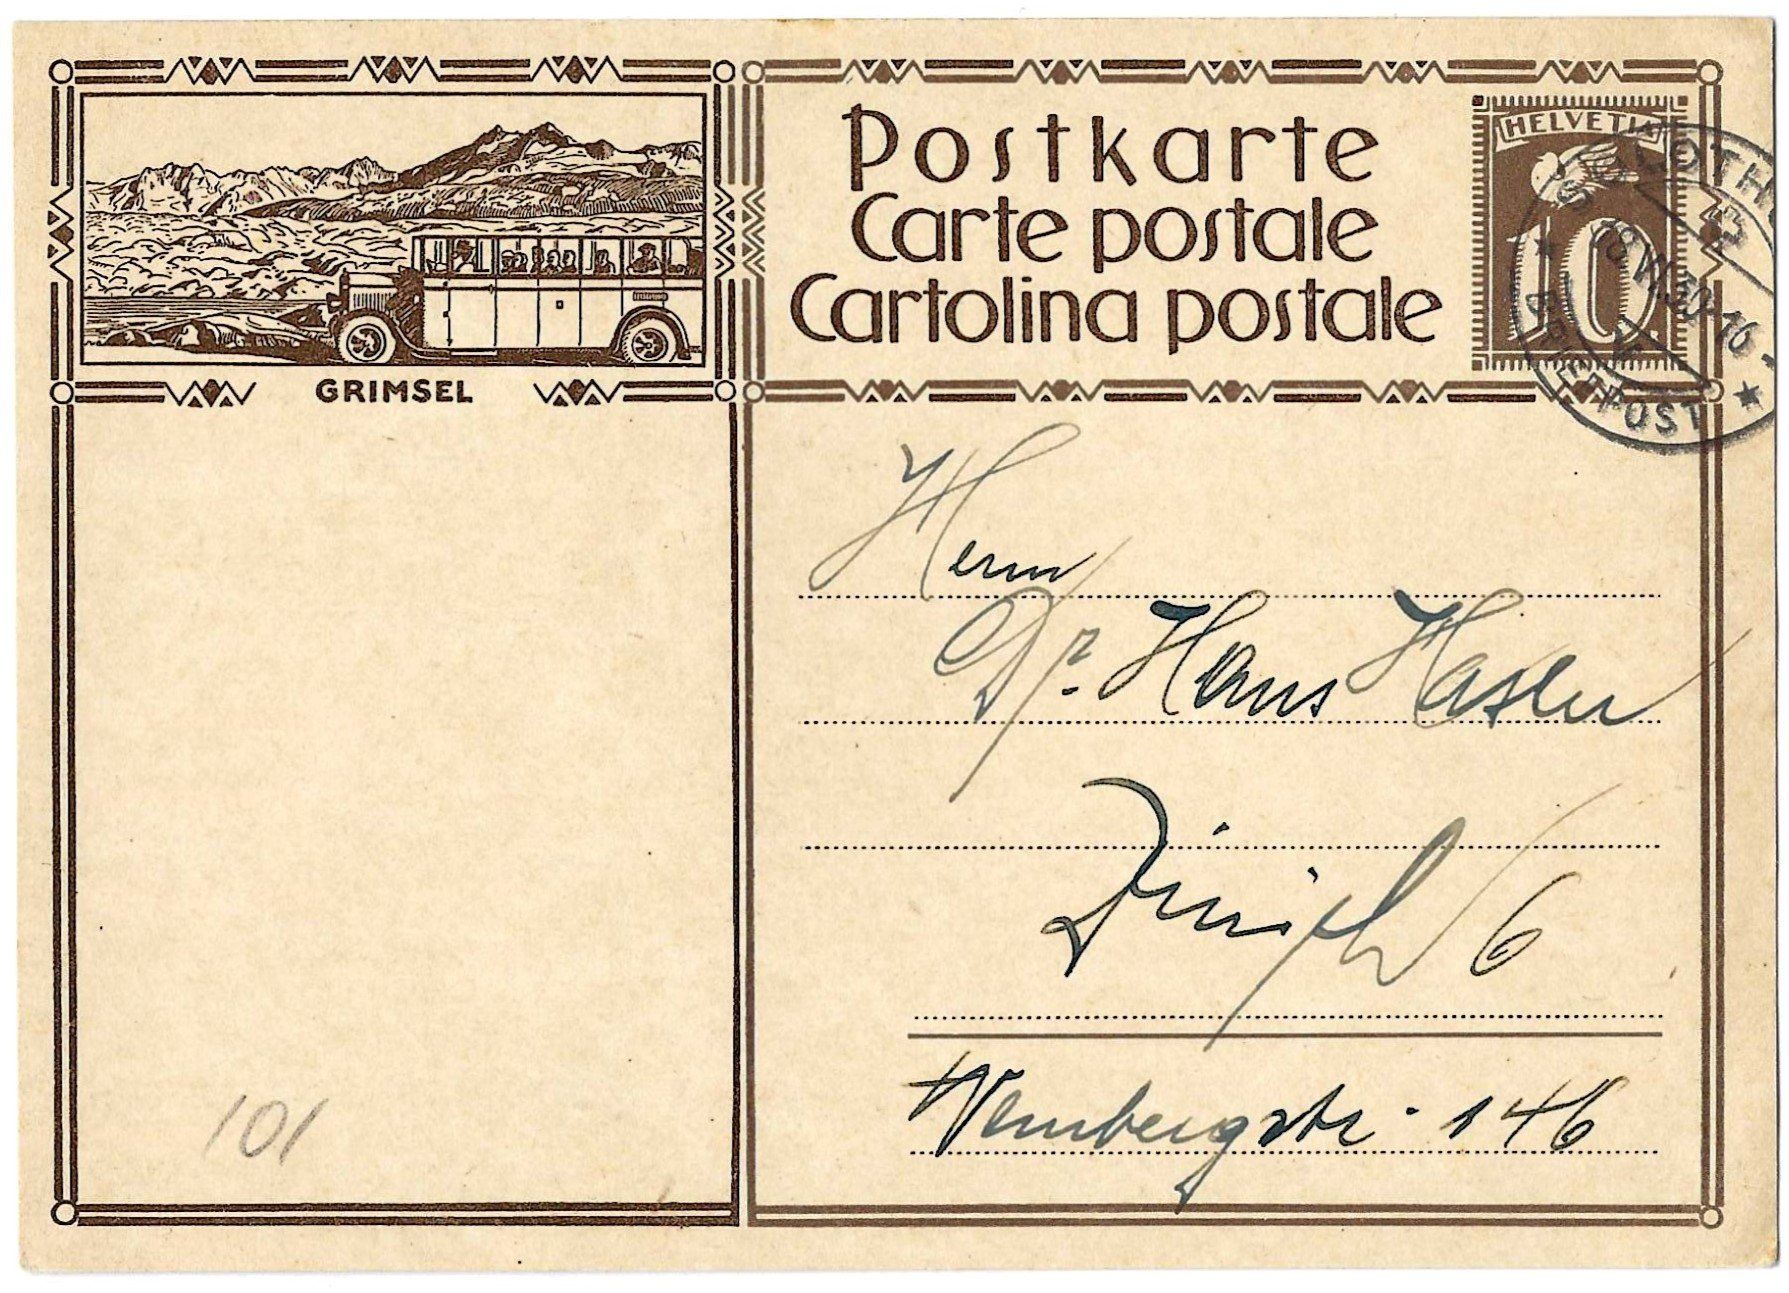 GRIMSEL
Postkarte
Carte postale
Cartolina postale
HELVETIA
10
SOLOTHURN
18.VI.30-16
BRIEFPOST
Herrn
Dr. Hans Hasler
Zürich 6
Weinbergstr. 146
101